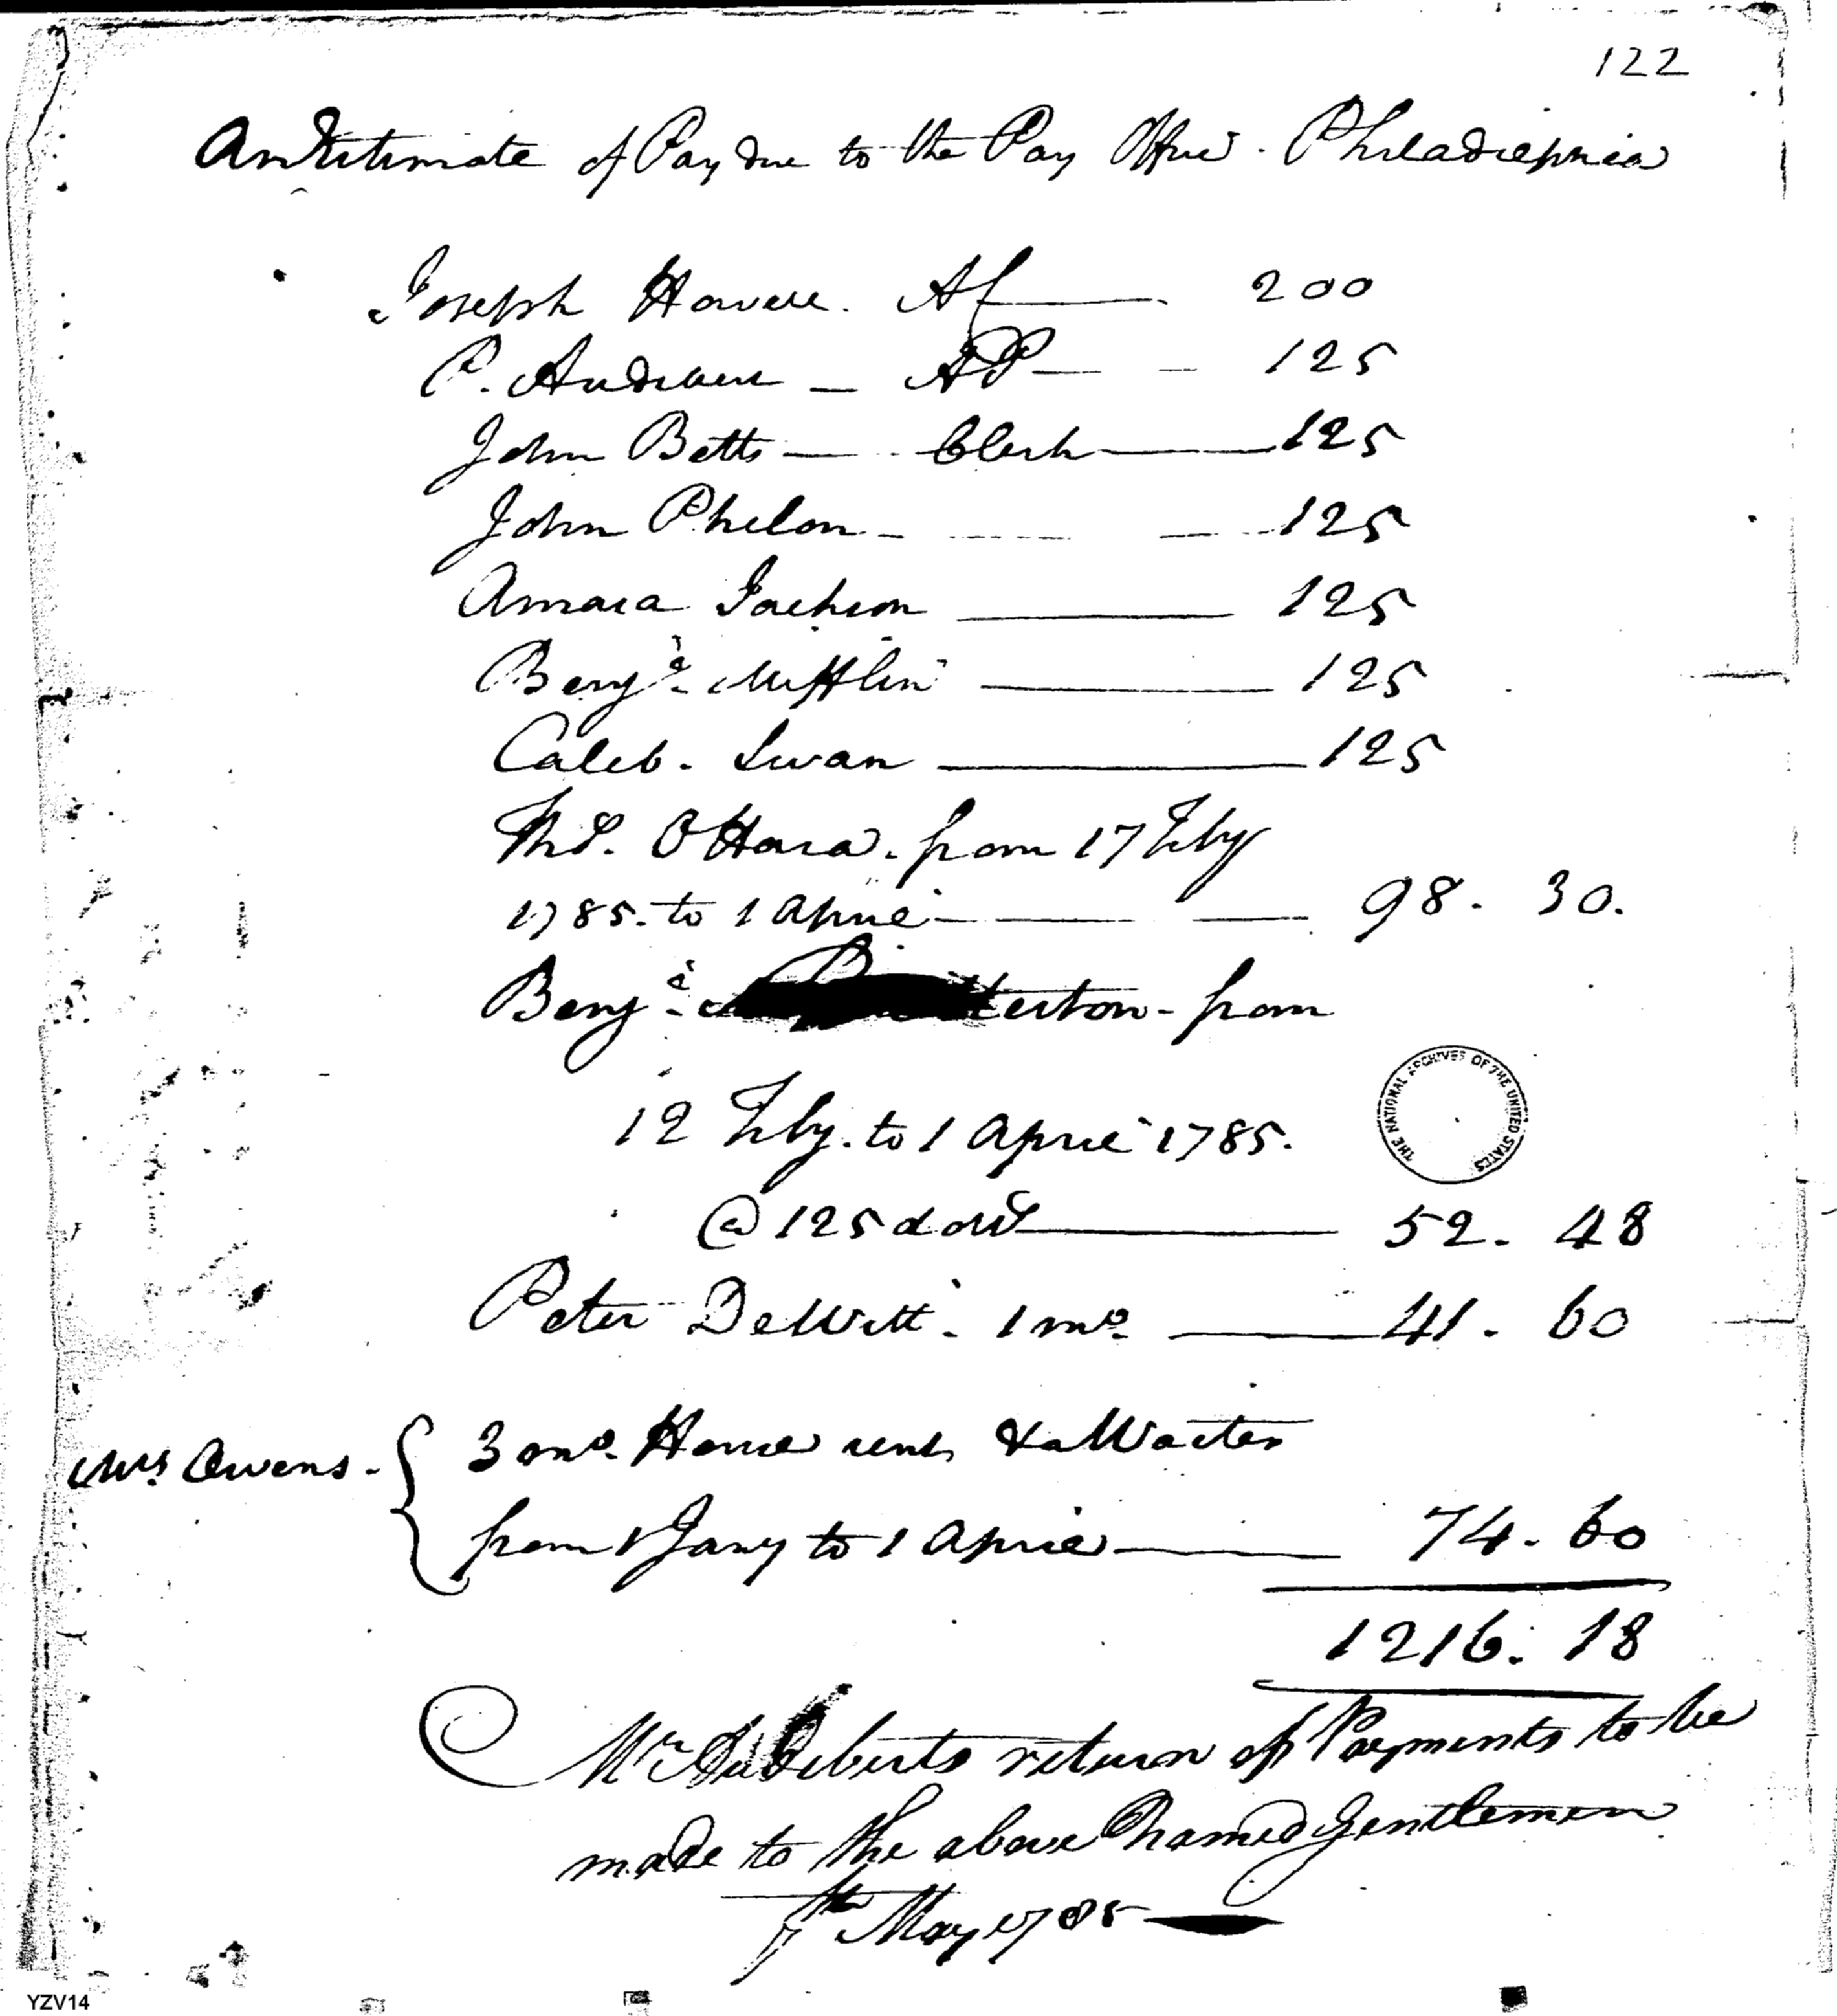 122
An Estimate of Pay due to the Pay Office. Philadelphia
Joseph Howell. 200
P. Audibert — AP — — 125
John Betts — Clerk — 125
John Phelon — — 125
Amasa Jackson — 125
Benjᵃ Mifflin — 125
Caleb. Swan — 125
Thˢ. O Hara. from 17 Feby
1785. to 1 April — — 98. 30.
Benjᵃ terton - from
12 Feby. to 1 April 1785.
@ 125 dolls — 52. 48
Peter DeWitt. 1 mo. — 41. 60
Mrs Owens. { 3 mo. House rent & a Waiter
from 1 Jany to 1 April — 74. 60
1216. 18
Mr Audeberts return of Payments to be
made to the above named Gentlemen
May 1785 —
THE NATIONAL ARCHIVES OF THE UNITED STATES
YZV14